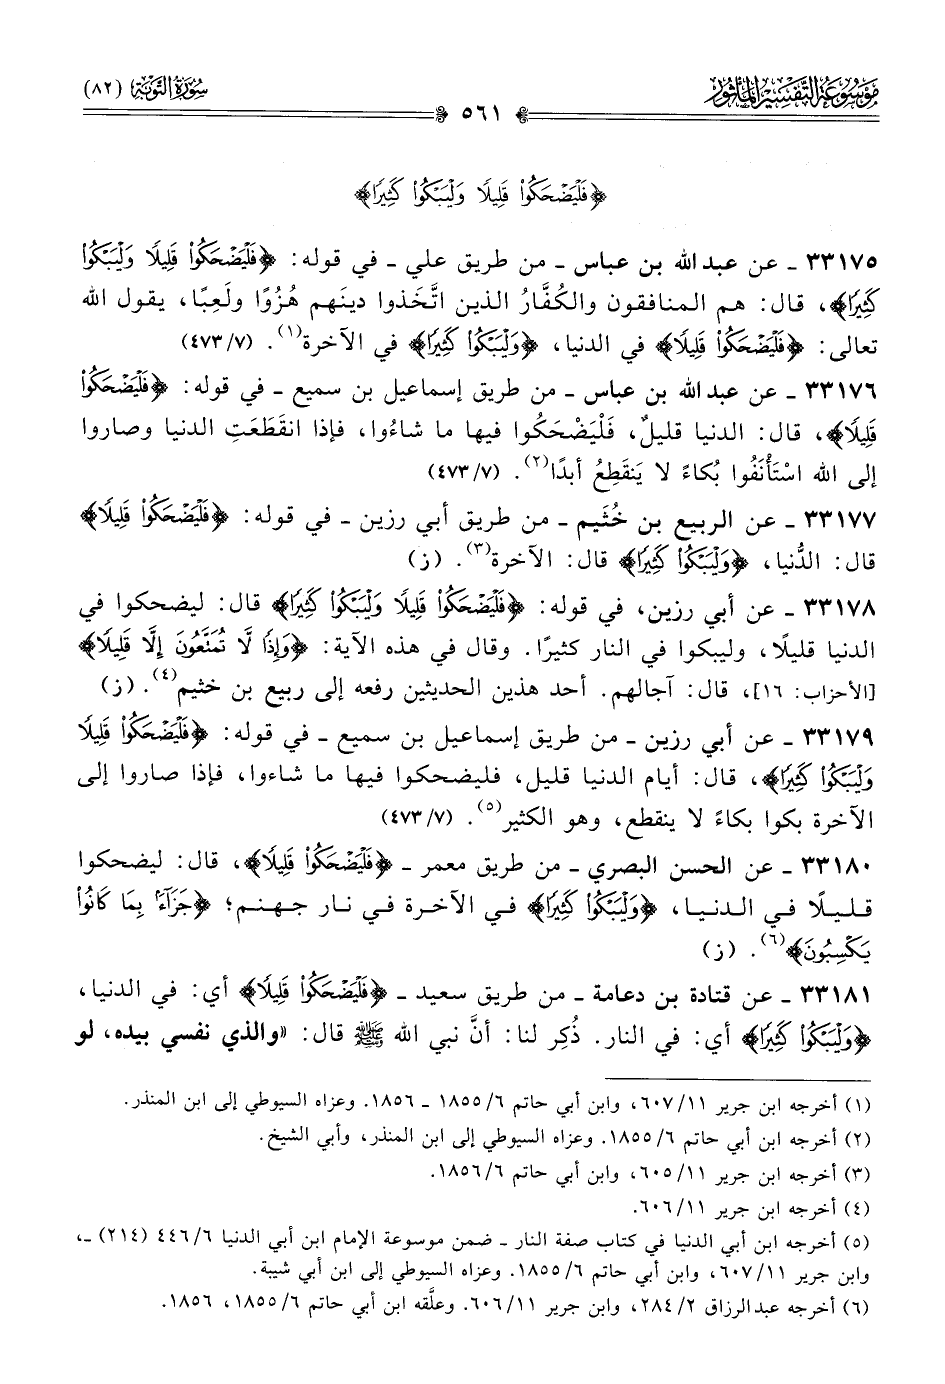 موسوعة التفسير المأثور
سورة التوبة (٨٢)
٥٦١
﴿فَلْيَضْحَكُوا۟ قَلِيلًا وَلْيَبْكُوا۟ كَثِيرًا﴾
٣٣١٧٥ ـ عن عبد الله بن عباس ـ من طريق علي ـ في قوله: ﴿فَلْيَضْحَكُوا۟ قَلِيلًا وَلْيَبْكُوا۟
كَثِيرًا﴾، قال: هم المنافقون والكُفَّارُ الذين اتَّخذوا دينَهم هُزُوًا ولَعِبًا، يقول الله
تعالى: ﴿فَلْيَضْحَكُوا۟ قَلِيلًا﴾ في الدنيا، ﴿وَلْيَبْكُوا۟ كَثِيرًا﴾ في الآخرة(١). (٤٧٣/٧)
٣٣١٧٦ ـ عن عبد الله بن عباس ـ من طريق إسماعيل بن سميع ـ في قوله: ﴿فَلْيَضْحَكُوا۟
قَلِيلًا﴾، قال: الدنيا قليلٌ، فَلْيَضْحَكُوا فيها ما شاءُوا، فإذا انقَطَعَتِ الدنيا وصاروا
إلى الله اسْتَأْنَفُوا بُكاءً لا يَنقَطِعُ أبدًا(٢). (٤٧٣/٧)
٣٣١٧٧ ـ عن الربيع بن خُثَيم ـ من طريق أبي رزين ـ في قوله: ﴿فَلْيَضْحَكُوا۟ قَلِيلًا﴾
قال: الدُّنيا، ﴿وَلْيَبْكُوا۟ كَثِيرًا﴾ قال: الآخرة(٣). (ز)
٣٣١٧٨ ـ عن أبي رزين، في قوله: ﴿فَلْيَضْحَكُوا۟ قَلِيلًا وَلْيَبْكُوا۟ كَثِيرًا﴾ قال: ليضحكوا في
الدنيا قليلًا، وليبكوا في النار كثيرًا. وقال في هذه الآية: ﴿وَإِذًا لَّا تُمَتَّعُونَ إِلَّا قَلِيلًا﴾
[الأحزاب: ١٦]، قال: آجالهم. أحد هذين الحديثين رفعه إلى ربيع بن خثيم(٤). (ز)
٣٣١٧٩ ـ عن أبي رزين ـ من طريق إسماعيل بن سميع ـ في قوله: ﴿فَلْيَضْحَكُوا۟ قَلِيلًا
وَلْيَبْكُوا۟ كَثِيرًا﴾، قال: أيام الدنيا قليل، فليضحكوا فيها ما شاءوا، فإذا صاروا إلى
الآخرة بكوا بكاءً لا ينقطع، وهو الكثير(٥). (٤٧٣/٧)
٣٣١٨٠ ـ عن الحسن البصري ـ من طريق معمر ـ ﴿فَلْيَضْحَكُوا۟ قَلِيلًا﴾، قال: ليضحكوا
قليلًا في الدنيا، ﴿وَلْيَبْكُوا۟ كَثِيرًا﴾ في الآخرة في نار جهنم؛ ﴿جَزَآءً بِمَا كَانُوا۟
يَكْسِبُونَ﴾(٦). (ز)
٣٣١٨١ ـ عن قتادة بن دعامة ـ من طريق سعيد ـ ﴿فَلْيَضْحَكُوا۟ قَلِيلًا﴾ أي: في الدنيا،
﴿وَلْيَبْكُوا۟ كَثِيرًا﴾ أي: في النار. ذُكِر لنا: أنَّ نبي الله ﷺ قال: «والذي نفسي بيده، لو
(١) أخرجه ابن جرير ٦٠٧/١١، وابن أبي حاتم ١٨٥٥/٦ ـ ١٨٥٦. وعزاه السيوطي إلى ابن المنذر.
(٢) أخرجه ابن أبي حاتم ١٨٥٥/٦. وعزاه السيوطي إلى ابن المنذر، وأبي الشيخ.
(٣) أخرجه ابن جرير ٦٠٥/١١، وابن أبي حاتم ١٨٥٦/٦.
(٤) أخرجه ابن جرير ٦٠٦/١١.
(٥) أخرجه ابن أبي الدنيا في كتاب صفة النار ـ ضمن موسوعة الإمام ابن أبي الدنيا ٤٤٦/٦ (٢١٤) ـ،
وابن جرير ٦٠٧/١١، وابن أبي حاتم ١٨٥٥/٦. وعزاه السيوطي إلى ابن أبي شيبة.
(٦) أخرجه عبد الرزاق ٢٨٤/٢، وابن جرير ٦٠٦/١١. وعلَّقه ابن أبي حاتم ١٨٥٥/٦، ١٨٥٦.